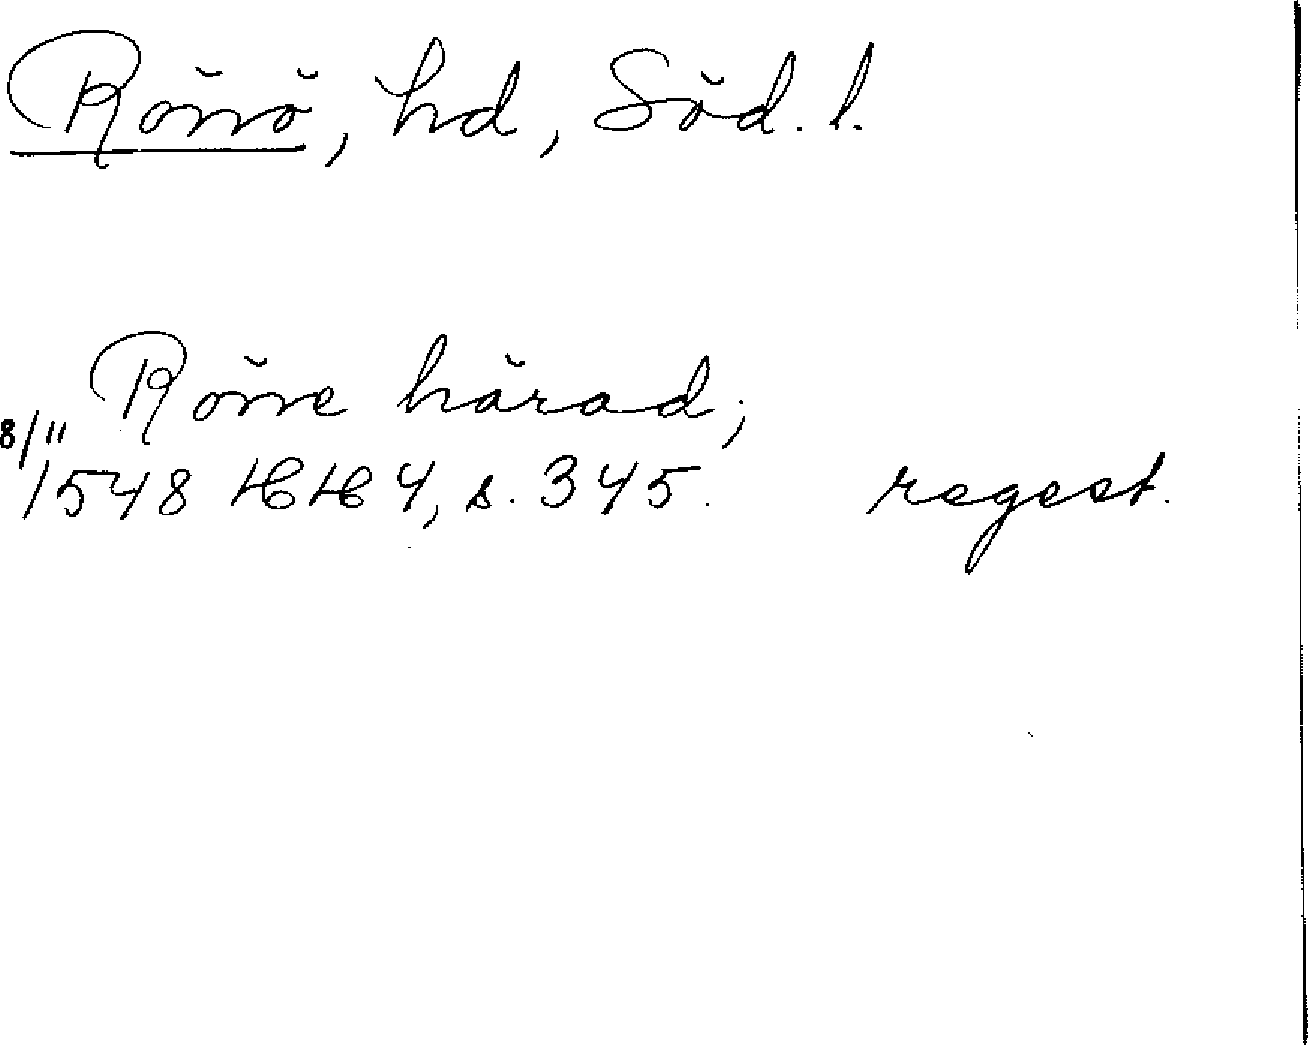 Rönö, hd, Söd. l.
Röne härad,
8/11
1548 HH 4, s. 345. regest.